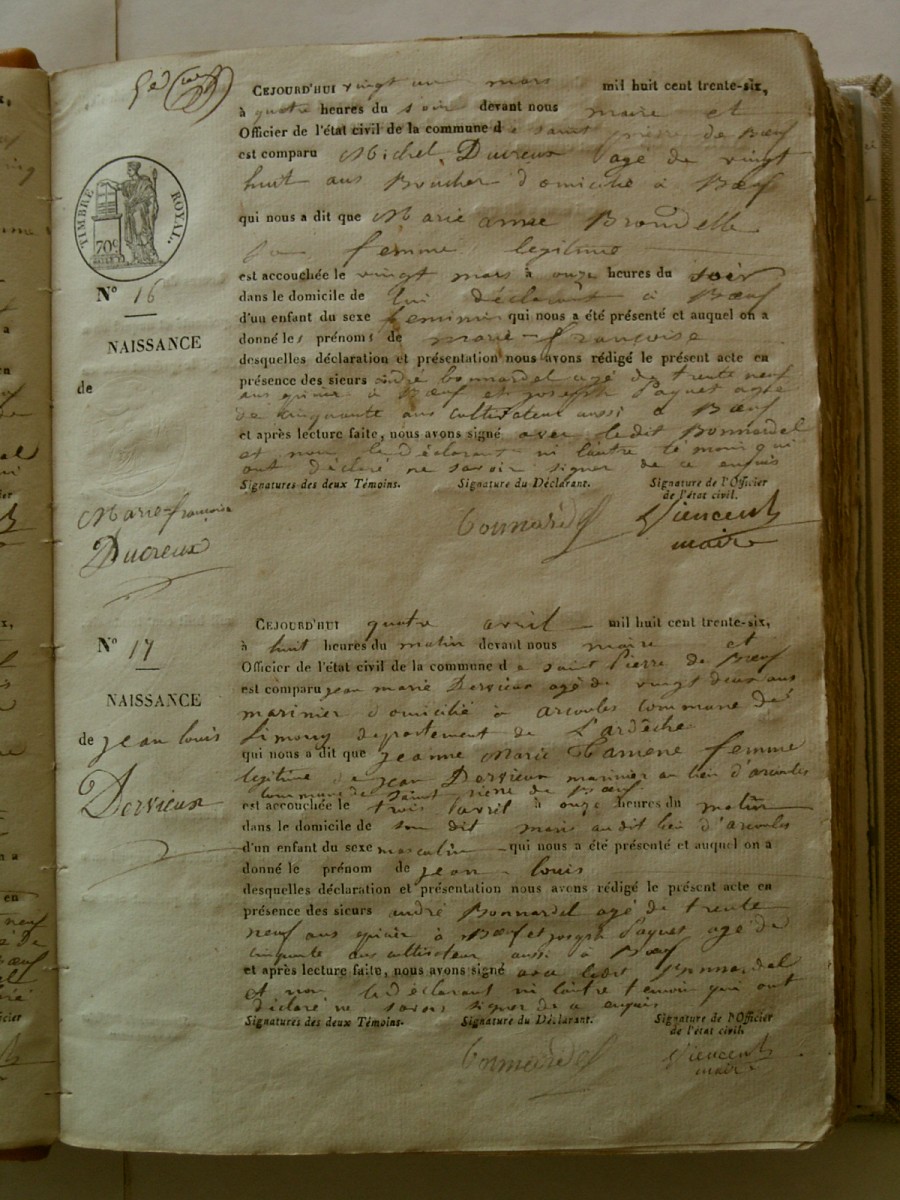 TIMBRE ROYAL.
70c
CEJOURD'HUI vingt un mars mil huit cent trente-six,
à quatre heures du soir devant nous maire et
Officier de l'état civil de la commune de saint pierre de Bœuf
est comparu Michel Ducreux agé de vingt
huit ans Boucher domicilié à Bœuf
qui nous a dit que Marie anne
sa femme legitime
est accouchée le vingt mars à onze heures du soir
dans le domicile de lui déclarant à Bœuf
d'un enfant du sexe feminin qui nous a été présenté et auquel on a
donné les prénoms de marie-françoise
desquelles déclaration et présentation nous avons rédigé le présent acte en
présence des sieurs andré bonnardel agé de trente neuf
ans epicier à Bœuf et joseph Paquet agé
de cinquante ans cultivateur aussi à Bœuf
et après lecture faite, nous avons signé avec ledit Bonnardel
et non le déclarant ni lautre temoin qui
ont déclaré ne savoir signer de ce enquis
Signatures des deux Témoins. Signature du Déclarant. Signature de l'Officier
de l'état civil.
maire
N° 16
NAISSANCE
de
Marie-françoise
Ducreux
CEJOURD'HUI quatre avril mil huit cent trente-six,
à huit heures du matin devant nous maire et
Officier de l'état civil de la commune de saint Pierre de Bœuf
est comparu jean marie Dervieux agé de vingt deux ans
marinier domicilié à arcoules commune de
Limony departement de L'ardêche
qui nous a dit que jeanne Marie femme
legitime de jean Dervieux marinier au lieu d'arcoules
commune de saint pierre de Bœuf
est accouchée le trois avril à onze heures du matin
dans le domicile de son dit mari audit lieu d'arcoules
d'un enfant du sexe masculin qui nous a été présenté et auquel on a
donné le prénom de jean louis
desquelles déclaration et présentation nous avons rédigé le présent acte en
présence des sieurs andré Bonnardel agé de trente
neuf ans epicier à Bœuf et joseph Paquet agé de
cinquante ans cultivateur aussi à Bœuf
et après lecture faite, nous avons signé avec ledit Bonnardel
et non le déclarant ni lautre temoin qui ont
déclaré ne savoir signer de ce enquis
Signatures des deux Témoins. Signature du Déclarant. Signature de l'Officier
de l'état civil.
maire
N° 17
NAISSANCE
de jean louis
Dervieux